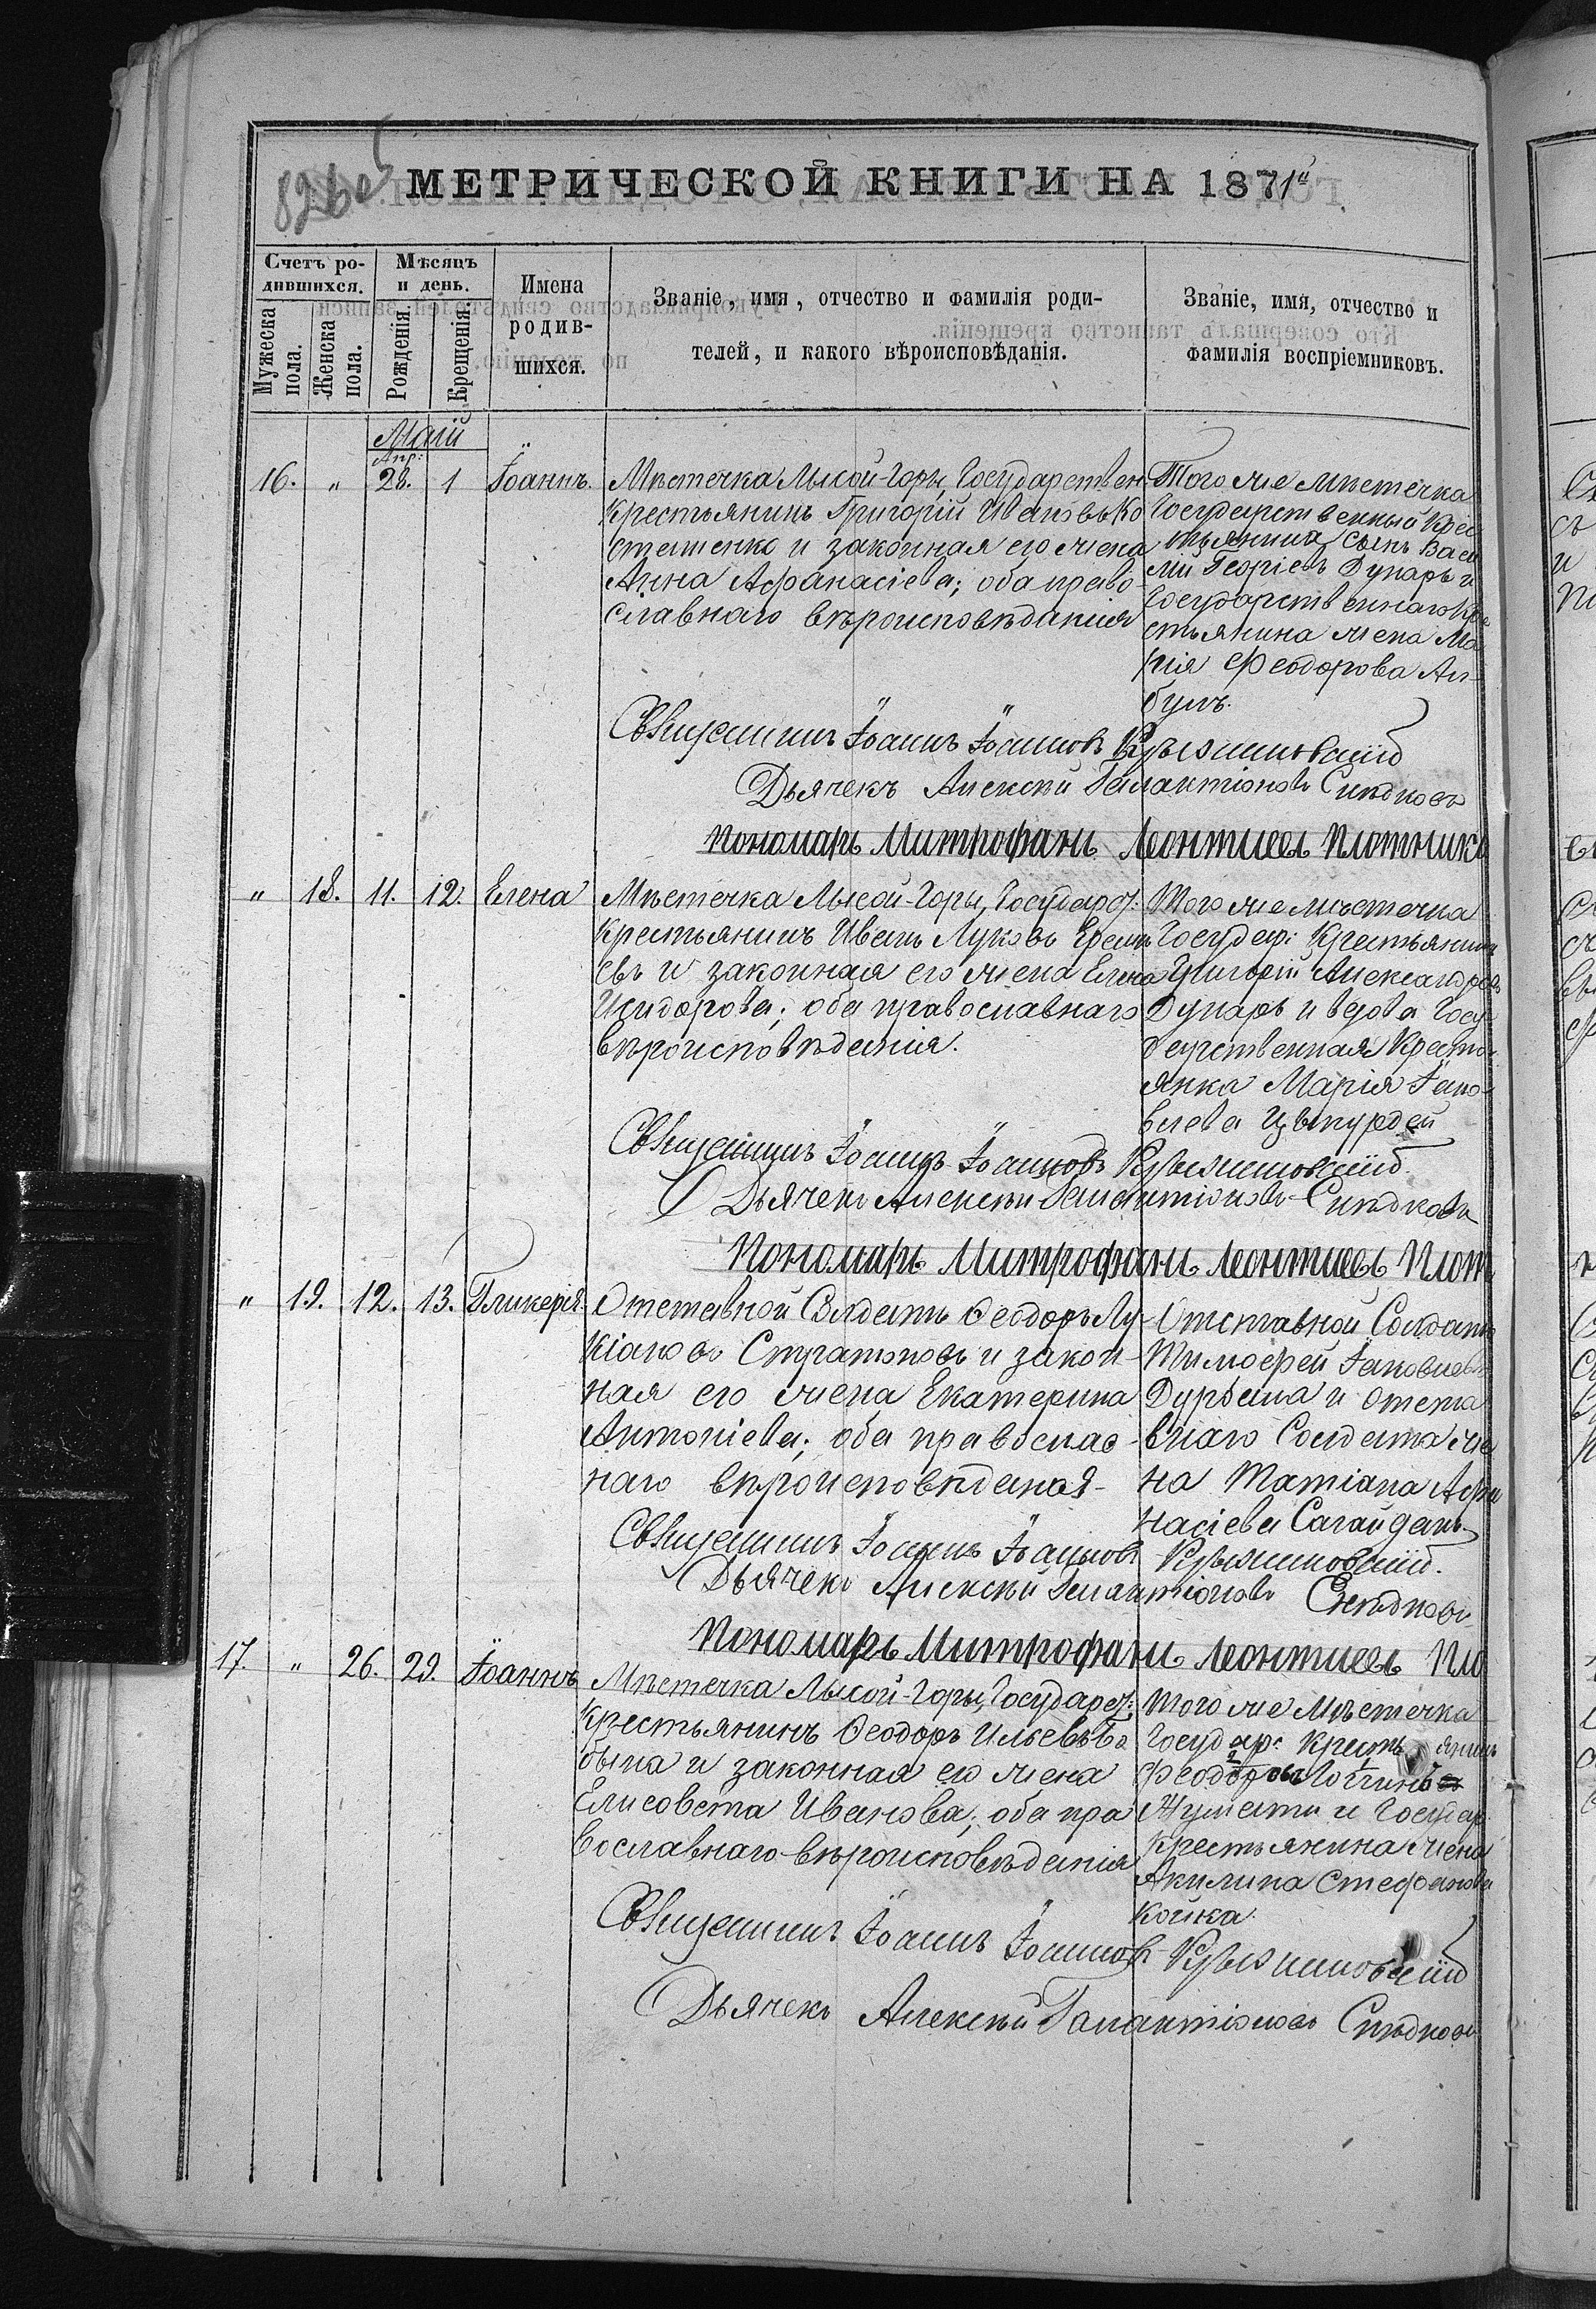 МЕТРИЧЕСКОЙ КНИГИ НА 1871й
Счетъ ро-
дившихся.
Мѣсяцъ
и день.
Мужеска
пола.
Женска
пола.
Рожденія.
Крещенія.
Имена
родив-
шихся.
Званіе, имя, отчество и фамилія роди-
телей, и какого вѣроисповѣданія.
Званіе, имя, отчество и
фамилія воспріемниковъ.
Маій
Апр:
16. " 28. 1 Іоаннъ.
Мѣстечка Лысой-Горы, Государствен
Крестьянинъ Григорій Ивановъ Ко
и законная его жена
Анна Афанасіева; оба право-
славнаго вѣроисповѣданія
Того же мѣстечка
Государственный Крес
тьянина сынъ Васи
лій Георгіевъ Дунаръ и
Государственнаго Кре
стьянина жена Ма
рія Феодорова Ал-
булъ.
Священникъ Іоаннъ Іоанновъ Крыжановскій
Дьячекъ Алексѣй Галактіоновъ Снѣдковъ
Пономарь Митрофанъ Леонтиевъ Плотнико
" 18. 11. 12. Елена
Мѣстечка Лысой-Горы, Государст:
Крестьянинъ Иванъ Луковъ Ереми
евъ и законная его жена Елена
Исидорова; оба православнаго
вѣроисповѣданія.
Того же мѣстечка
Государ: Крестьянинъ
Григорій Александровъ
Дунаръ и вдова Госу-
дарственная Кресть-
янка Марія Іако-
влева
Священникъ Іоаннъ Іоанновъ Крыжановскій.
Дьячекъ Алексѣй Галактіоновъ Снѣдковъ
Пономарь Митрофанъ Леонтиевъ Плотн
" 19. 12. 13. Гликерія.
Отставной Солдатъ Феодоръ Лу-
кіановъ Стратоновъ и закон-
ная его жена Екатерина
Антоніева; оба православ-
наго вѣроисповѣданія
Отставной Солдатъ
Тимофей Іаковлевъ
Дурбала и отста
внаго Солдата же
на Татіана Афа
насіева Сагайданъ
Священникъ Іоаннъ Іоанновъ Крыжановскій.
Дьячекъ Алексѣй Галактіоновъ Снѣдковъ
Пономарь Митрофанъ Леонтиевъ Пло
17. " 26. 29. Іоаннъ
Мѣстечка Лысой-Горы, Государст:
Крестьянинъ Феодоръ Ильевъ Бо
была и законная его жена
Елисовета Иванова; оба пра
вославнаго вѣроисповѣданія
Того же Мѣстечка
Государ: Крестьянинъ
и Государ
крестьянина жена
Акилина Стефанова
Койка.
Священникъ Іоаннъ Іоанновъ Крыжановскій
Дьячекъ Алексѣй Галактіоновъ Снѣдковъ